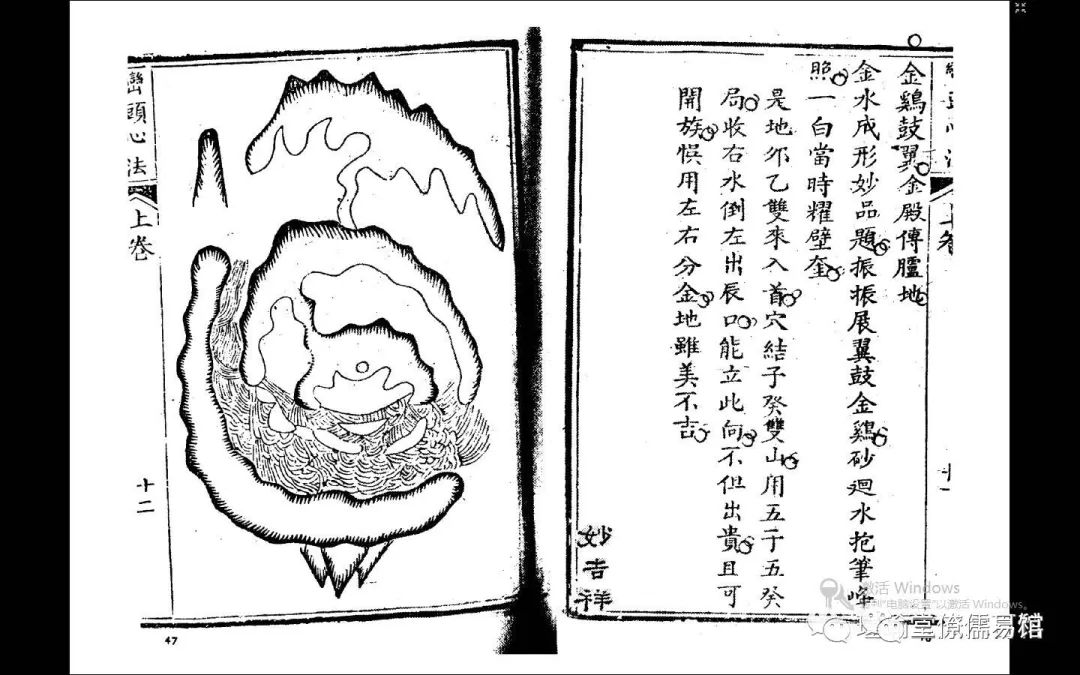 金鷄鼓翼金殿傳臚地
金水成形妙品題振振展翼鼓金鷄砂迴水抱筆峰
照一白當時耀壁奎
是地邜乙雙來入首穴結子癸雙山用五子五癸
局收右水倒左出辰口能立此向不但出貴且可
開族悮用左右分金地雖美不吉
妙吉祥
巒頭心法
上卷
十二
47
激活 Windows
"电脑设置"以激活 Windows。
儒易馆